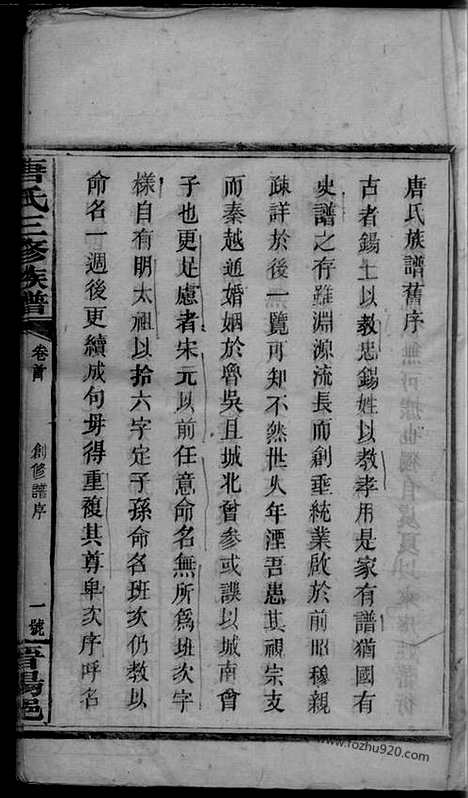 唐氏族譜舊序
古者錫土以教忠錫姓以教孝用是家有譜猶國有
史譜之存雖淵源流長而創垂統業啟於前昭穆親
疎詳於後一覽可知不然世久年湮吾患其視宗支
而秦越通婚姻於魯吳且城北曾參或誤以城南曾
子也更足慮者宋元以前任意命名無所爲班次字
樣自有明太祖以拾六字定子孫命名班次仍教以
命名一週後更續成句毋得重複其尊卑次序呼名
唐氏三修族譜
卷首
創修譜序
一號
晋陽邑
www.fozhu920.com